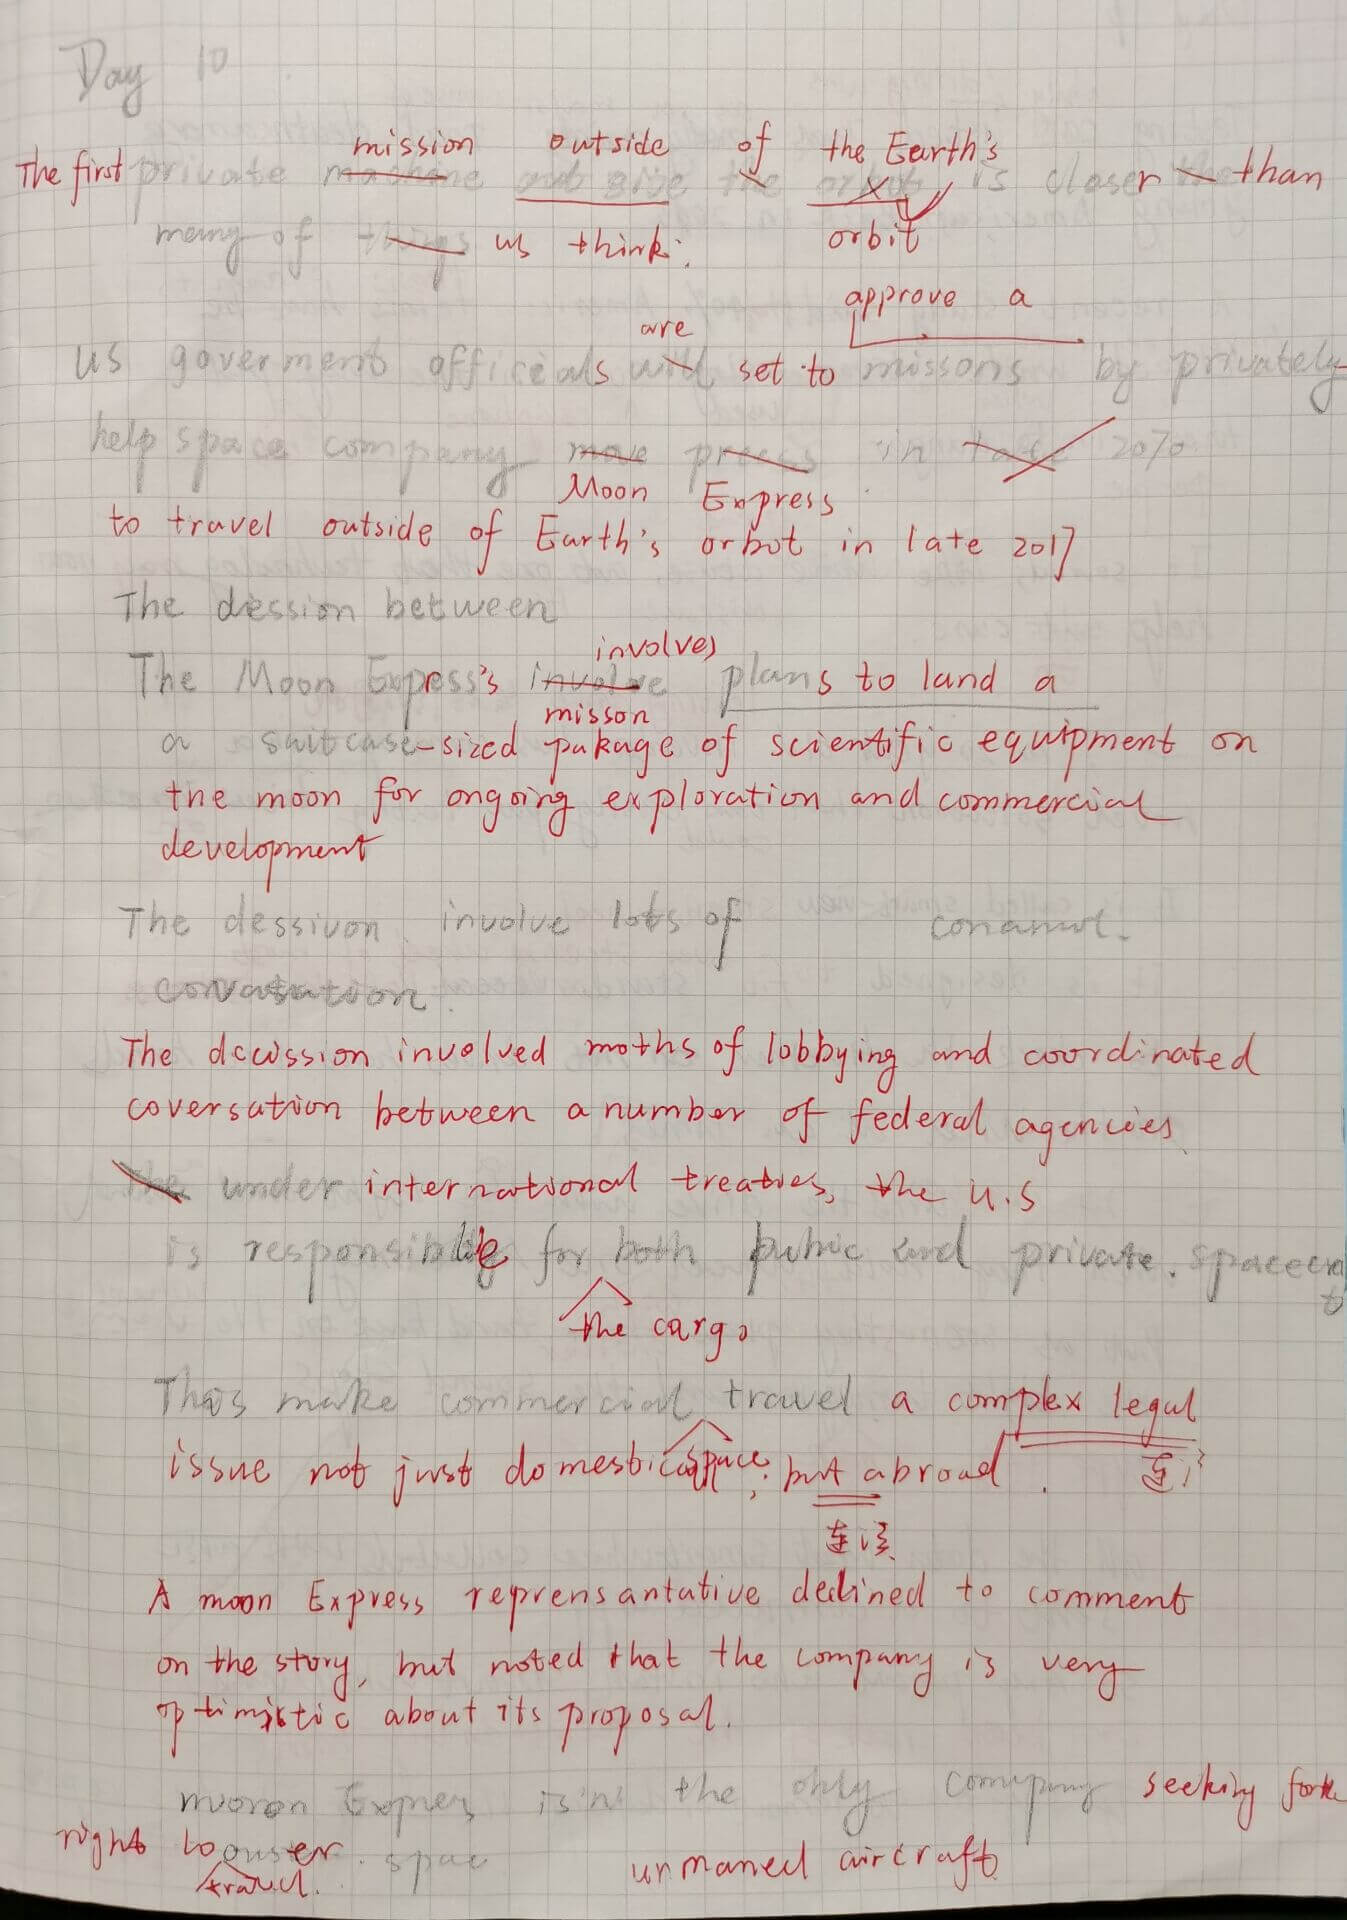 Day 10
mission outside of the Earth's
The first private machine out side the orbit is closer than
many of things us think.
orbit
approve a
are
us goverment officials will set to missons by privately
help space company move press in late 2070
Moon Express
to travel outside of Earth's orbot in late 2017
The dession between
involves
The Moon Express's involve plans to land a
misson
a suitcase-sized pakage of scientific equipment on
the moon for ongoing exploration and commercial
development
The dession involve lots of
The decission involved moths of lobbying and coordinated
coversation between a number of federal agencies
The under international treaties, the U.S
is responsible for both pubic and private spacecra
the cargo
Thos make commercial travel a complex legal
issue not just domestic space, but abroad.
连读
连读
A moon Express reprensantative declined to comment
on the story, but noted that the company is very
optimistic about its proposal.
mooron Expres is'n the only company seeking for the
right to outer spac unmaned aircraft
travel.